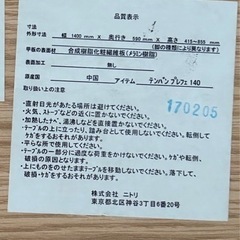 品質表示
寸法
外形寸法 幅 1400 mm × 奥行き 590 mm × 高さ 415~855 mm
(脚の種類により異なります)
甲板の表面材 合成樹脂化粧繊維板(メラミン樹脂)
表面加工 無し
原産国 中国 アイテム テンバン プレフェ 140
取り扱い上の注意 170205
・直射日光があたる場所は避けてください。
・火気、ストーブなどの近くに置かないでください。
・加熱したナベ、湯沸しなどを直接置かないでください。
・テーブルの上に立ったり、踏み台にしないでください。転倒して
ケガをするおそれがあります。
・平らな所で使用してください。
・テーブルの一部分に過度な荷重をかけないでください。ケガや転倒、
破損の原因となります。
・上にものをのせたままテーブルを移動しないでください。落下して、
破損・ケガをするおそれがあります。
株式会社 ニトリ
東京都北区神谷3丁目6番20号